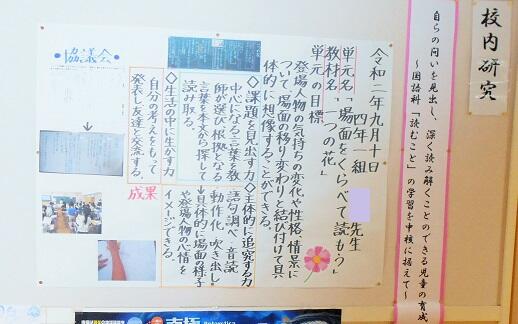 校内研究
自らの問いを見出し、深く読み解くことのできる児童の育成
～国語科「読むこと」の学習を中核に据えて～
令和二年九月十日
四年一組
先生
単元名「場面をくらべて読もう」
教材名「一つの花」
単元の目標
登場人物の気持ちの変化や性格、情景に
ついて、場面の移り変わりと結び付けて具
体的に想像することができる。
◇課題を見出す力
中心になる言葉を教
師が選び根拠となる
言葉を本文から探して
読み取る。
◇主体的に追究する力
語句調べ、音読
動作化、吹き出し
→具体的に場面の様子
や登場人物の心情を
イメージできる。
◇生活の中に生かす力
自分の考えをもって
発表し友達と交流する。
成果
協議会
南極